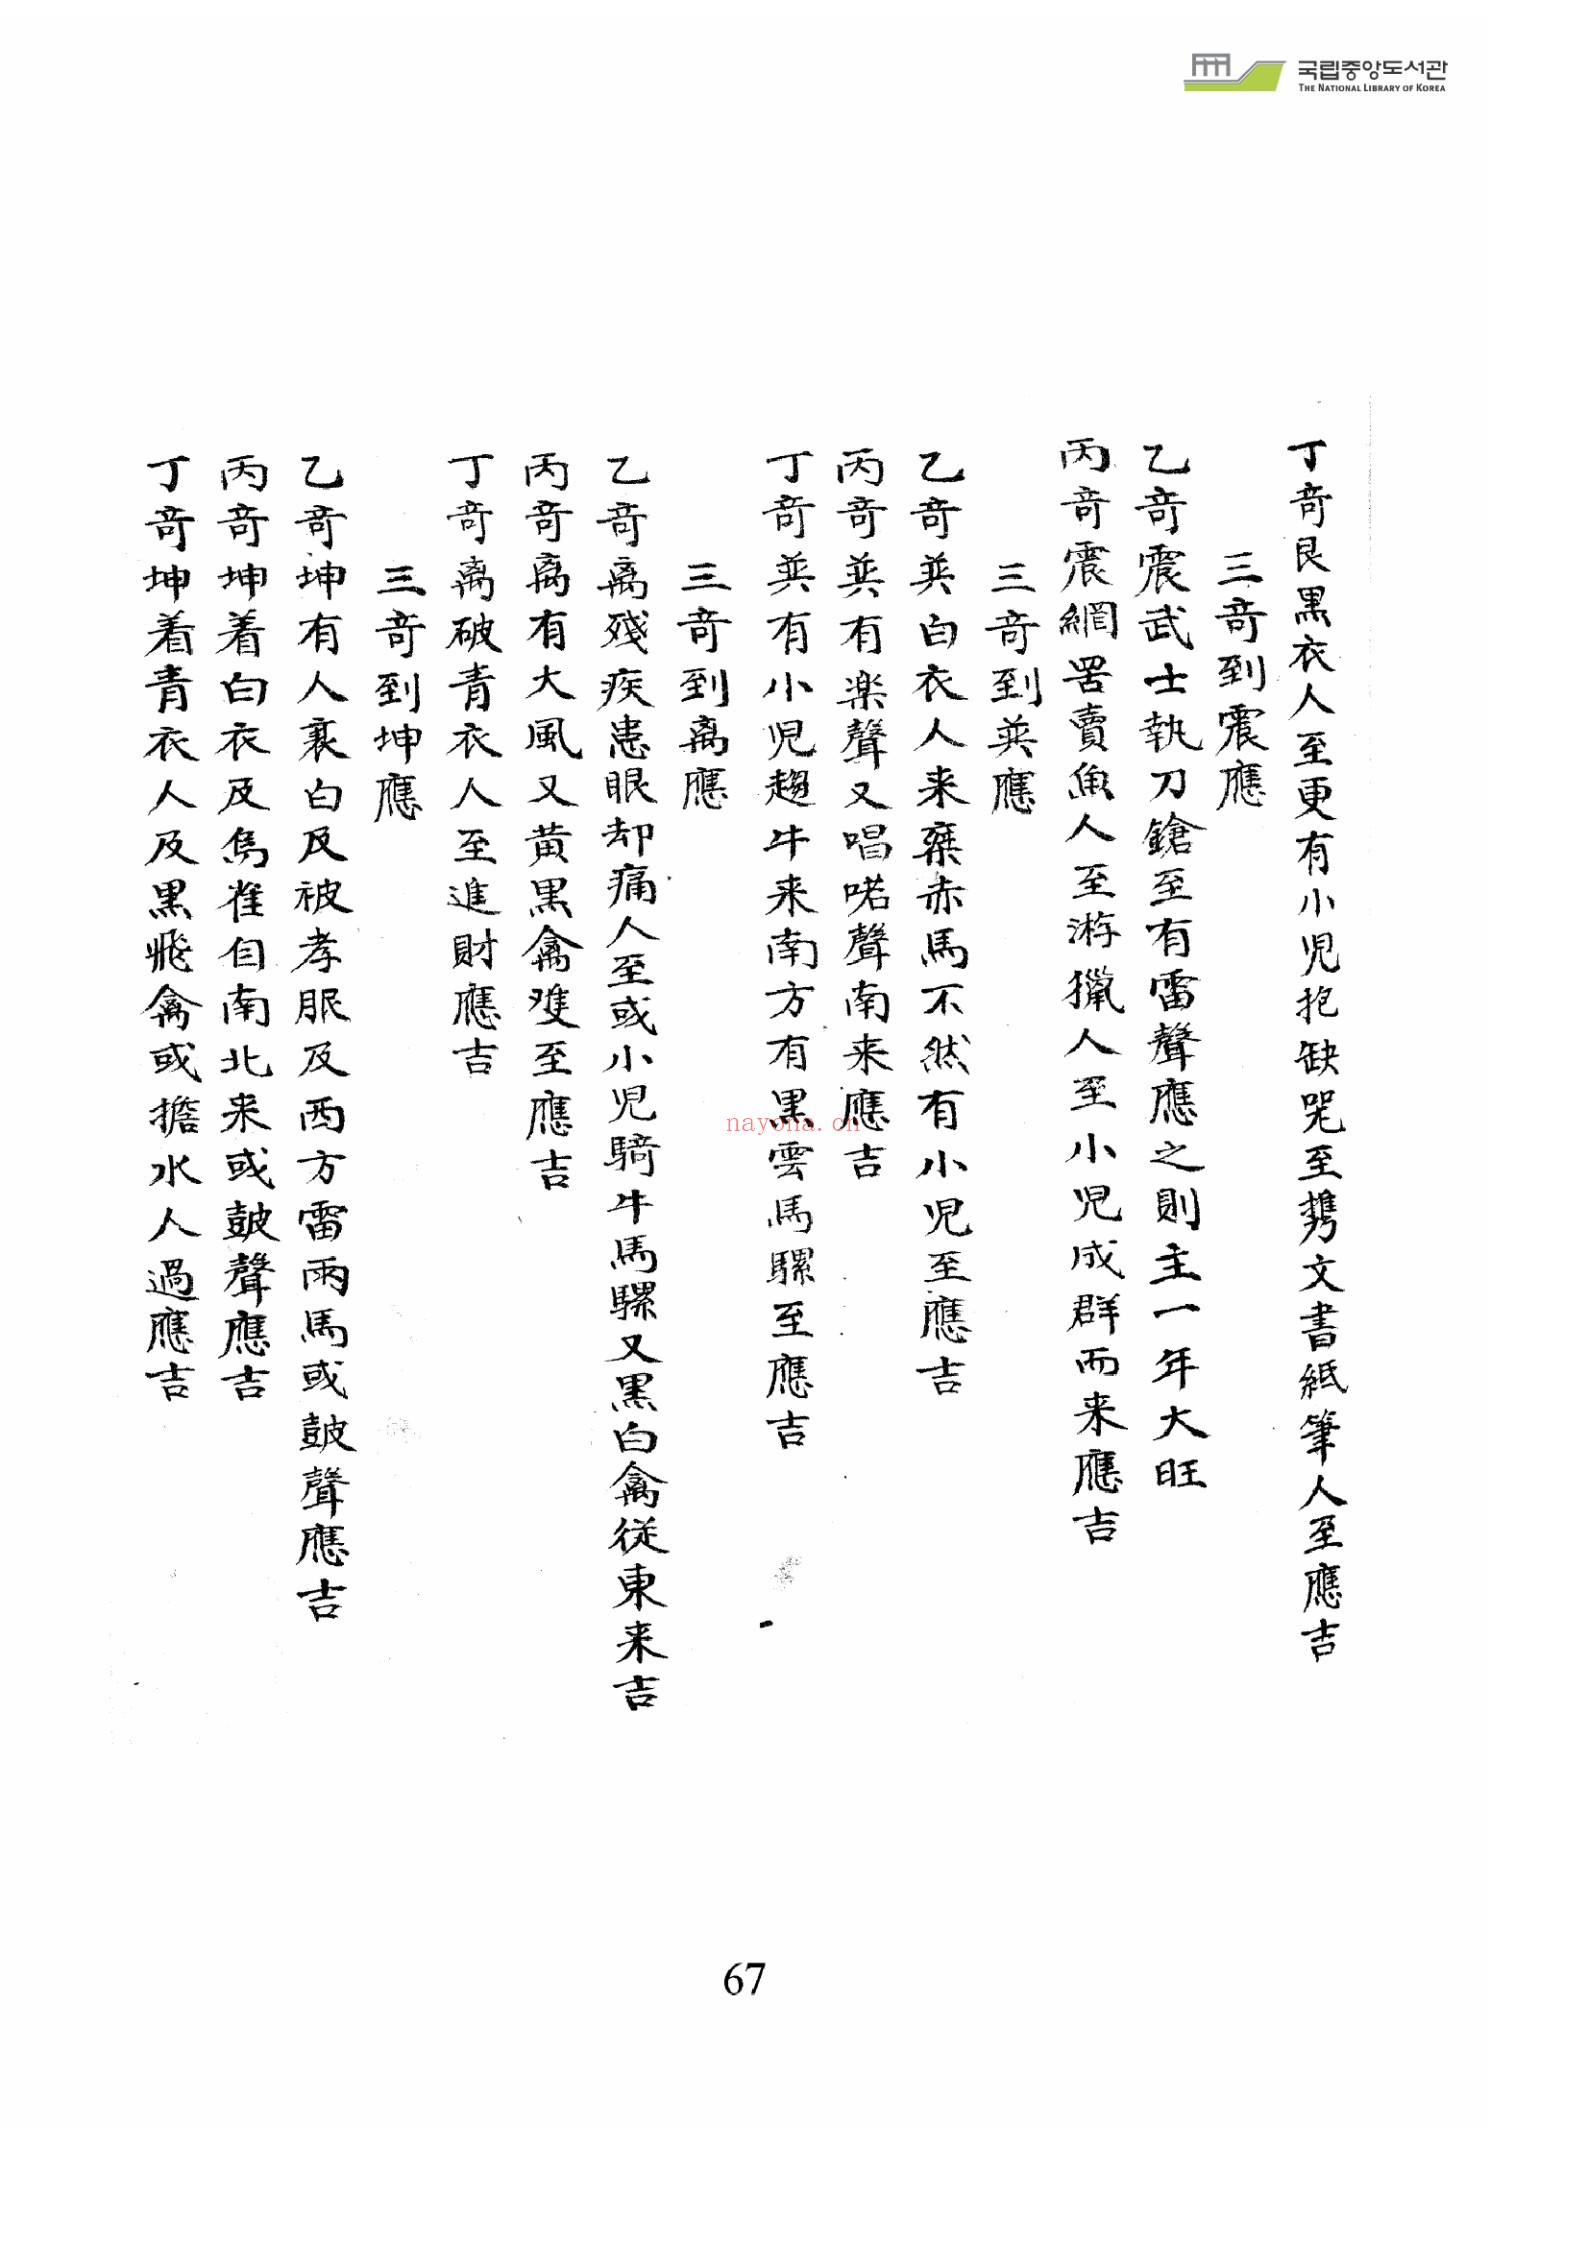 국립중앙도서관
THE NATIONAL LIBRARY OF KOREA
丁竒艮黒衣人至更有小児抱缺哭至携文書紙筆人至應吉
三竒到震應
乙竒震武士執刀鎗至有雷聲應之則主一年大旺
丙竒震網罟賣魚人至游獵人至小児成群而来應吉
三竒到巽應
乙竒巽白衣人来乗赤馬不然有小児至應吉
丙竒巽有楽聲又唱喏聲南来應吉
丁竒巽有小児趨牛来南方有黒雲馬騾至應吉
三竒到离應
乙竒离殘疾患眼却痛人至或小児騎牛馬騾又黒白禽従東来吉
丙竒离有大風又黄黒禽雙至應吉
丁竒离破青衣人至進財應吉
三竒到坤應
乙竒坤有人裹白及被孝服及西方雷雨馬或皷聲應吉
丙竒坤着白衣及烏雀自南北来或皷聲應吉
丁竒坤着青衣人及黒飛禽或擔水人過應吉
nayona.cn
67